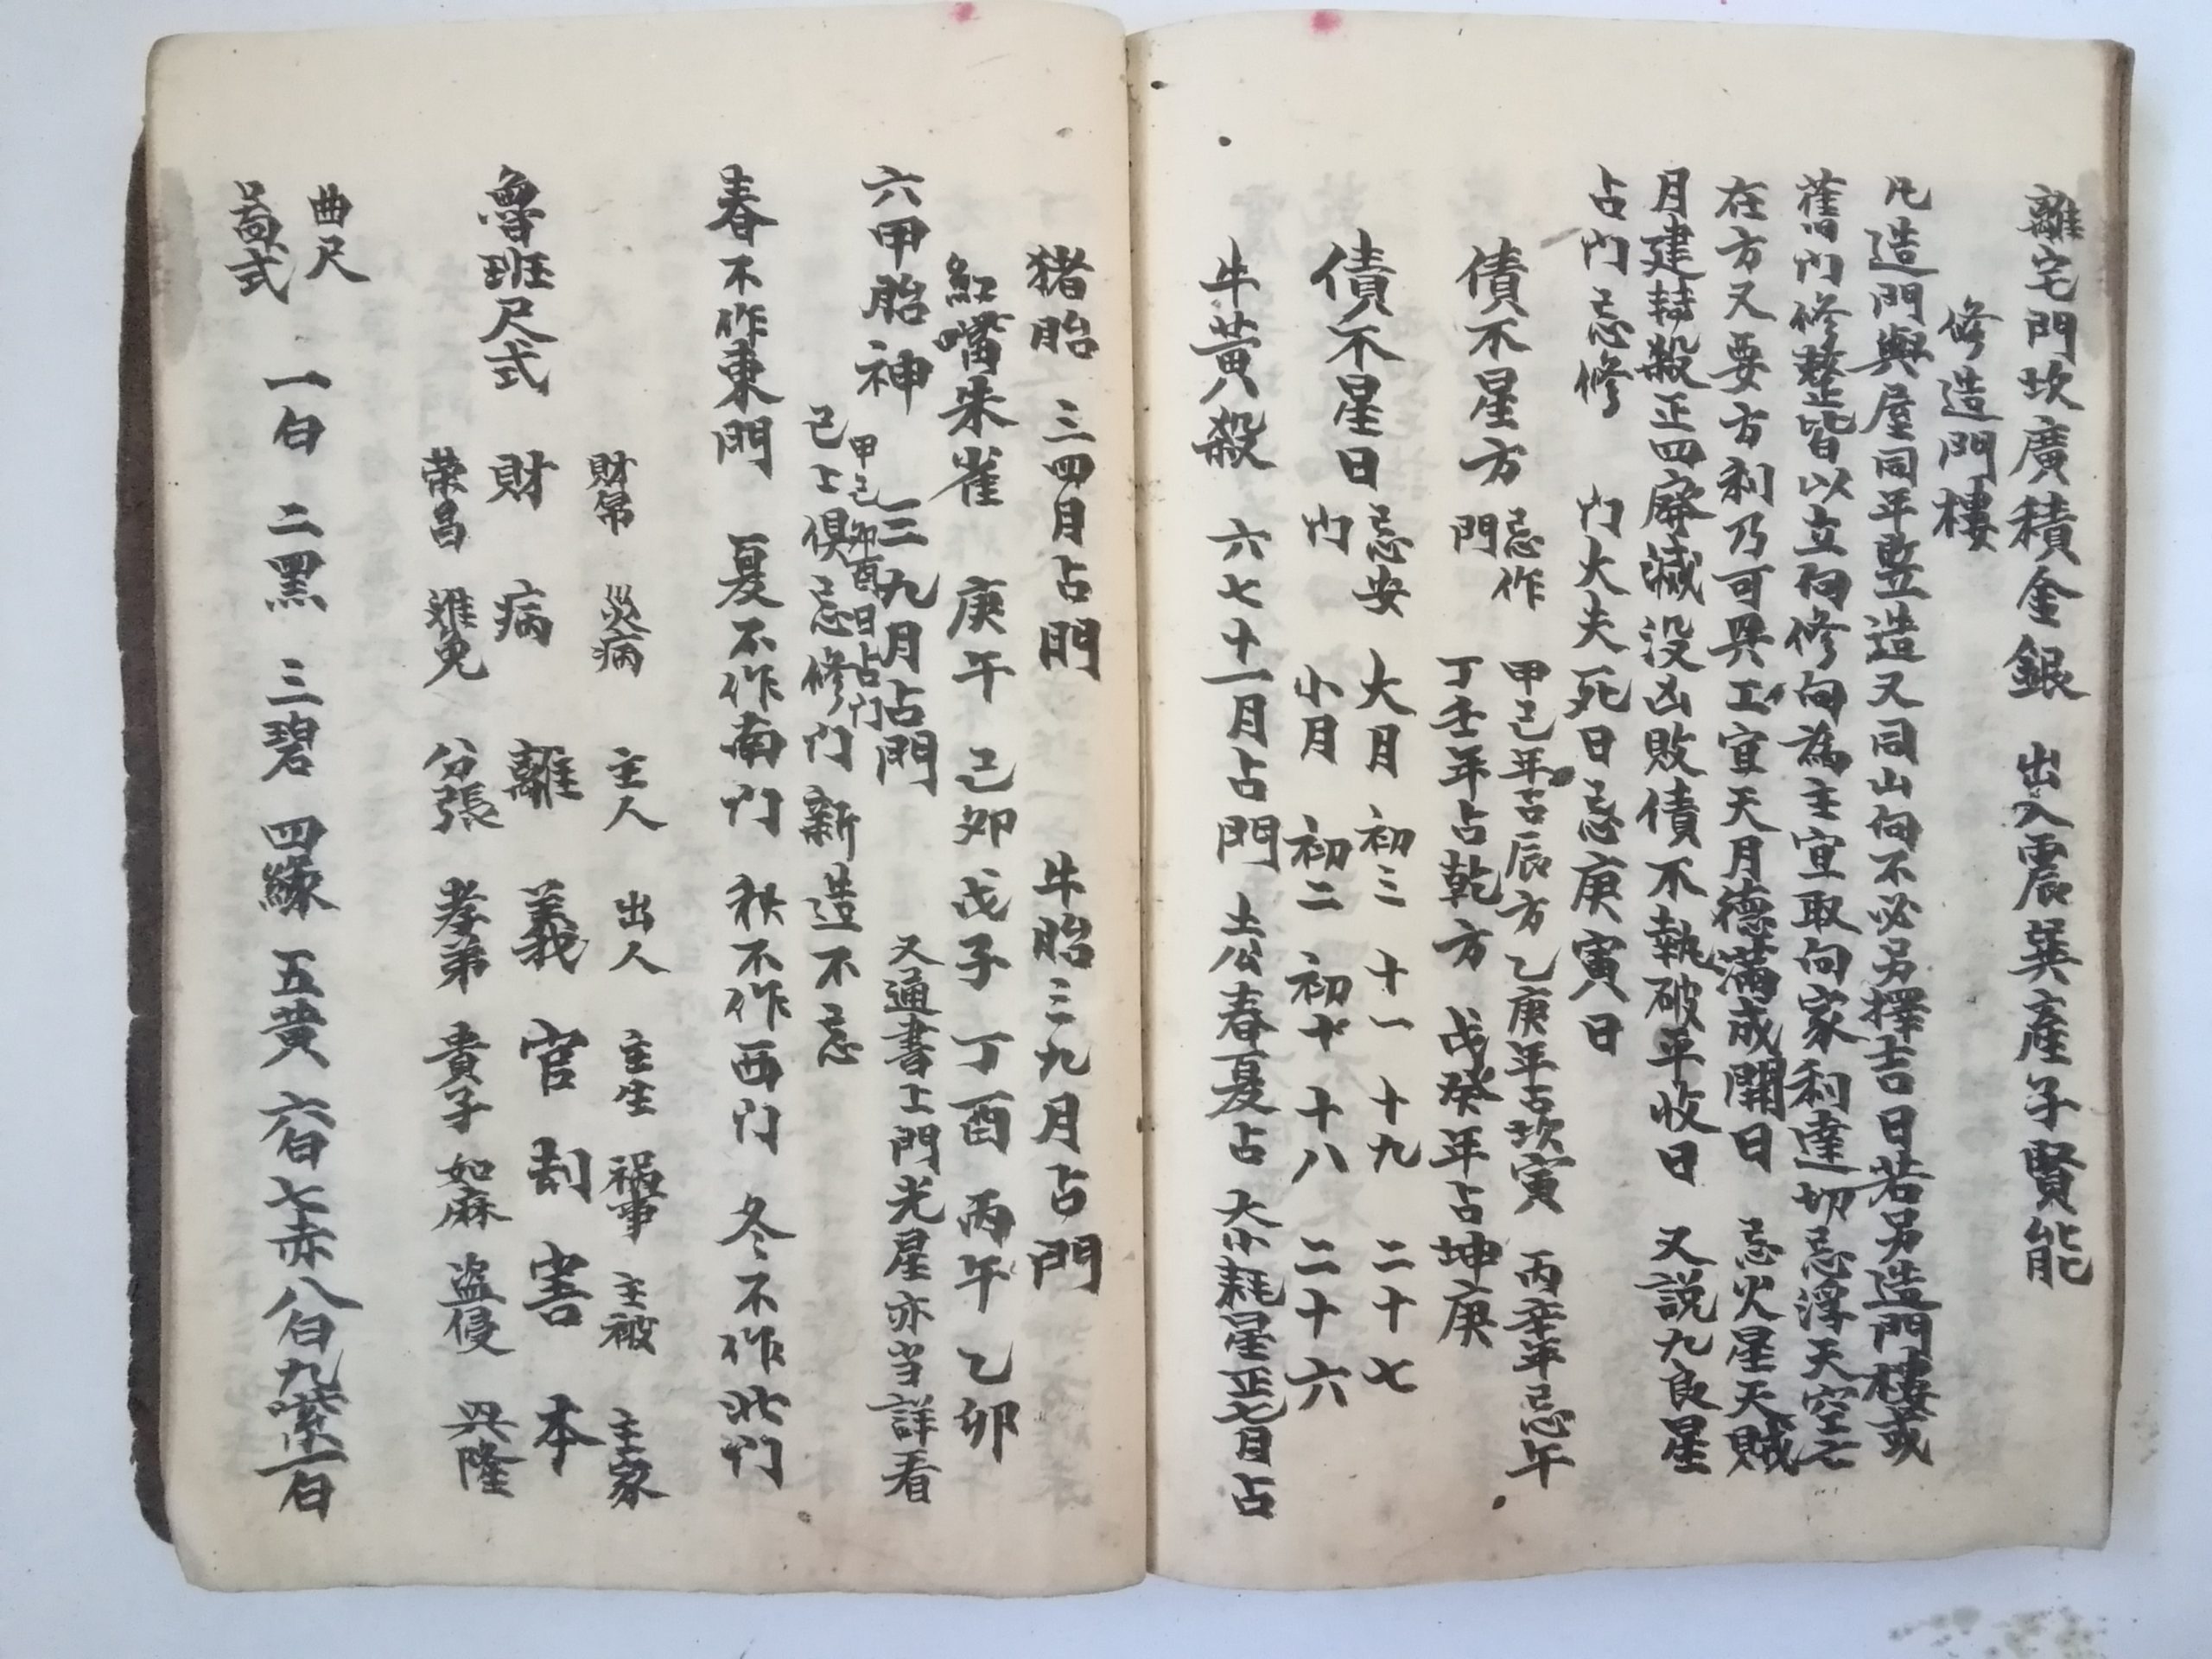 離宅門坎廣積金銀　出入震巽產子賢能
修造門樓
凡造門與屋同年豎造又同山向不必另擇吉日若另造門樓或
舊门修整皆以立向修向為主宜取向家利達切忌浮天空亡
在方又要方利乃可興工宜天月德滿成開日　忌火星天賊
月建轉殺正四廢滅没凶敗債不執破平收日　又説九良星
占门忌修　门大夫死日忌庚寅日
債不星方　忌作門　甲己年占辰方　乙庚年占坎寅　丙辛年忌午
丁壬年占乾方　戊癸年占坤庚
債不星日　忌安门　大月　初三　十一　十九　二十七
小月　初二　初十　十八　二十六
牛黃殺　六七十一月占門　土公春夏占　大小耗星正七月占
猪胎　三四月占門　牛胎三九月占門
紅嘴朱雀　庚午　己卯　戊子　丁酉　丙午　乙卯
六甲胎神　三九月占門　又通書上門光星亦当詳看
甲己卯酉日占门
己上俱忌修门新造不忌
春不作東門　夏不作南门　秋不作西门　冬不作北门
財帛　災病　主人　出人　主生　禍事　主被　主家
魯班尺式　財　病　離　義　官　刦　害　本
荣昌　难免　分張　孝弟　貴子　如麻　盗侵　興隆
曲尺
式　一白　二黑　三碧　四緑　五黄　六白七赤八白九紫一白